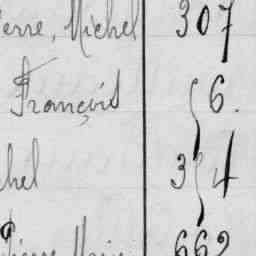 ierre, Michel 307
François 6.
chel 354
Pierre, Marie 662